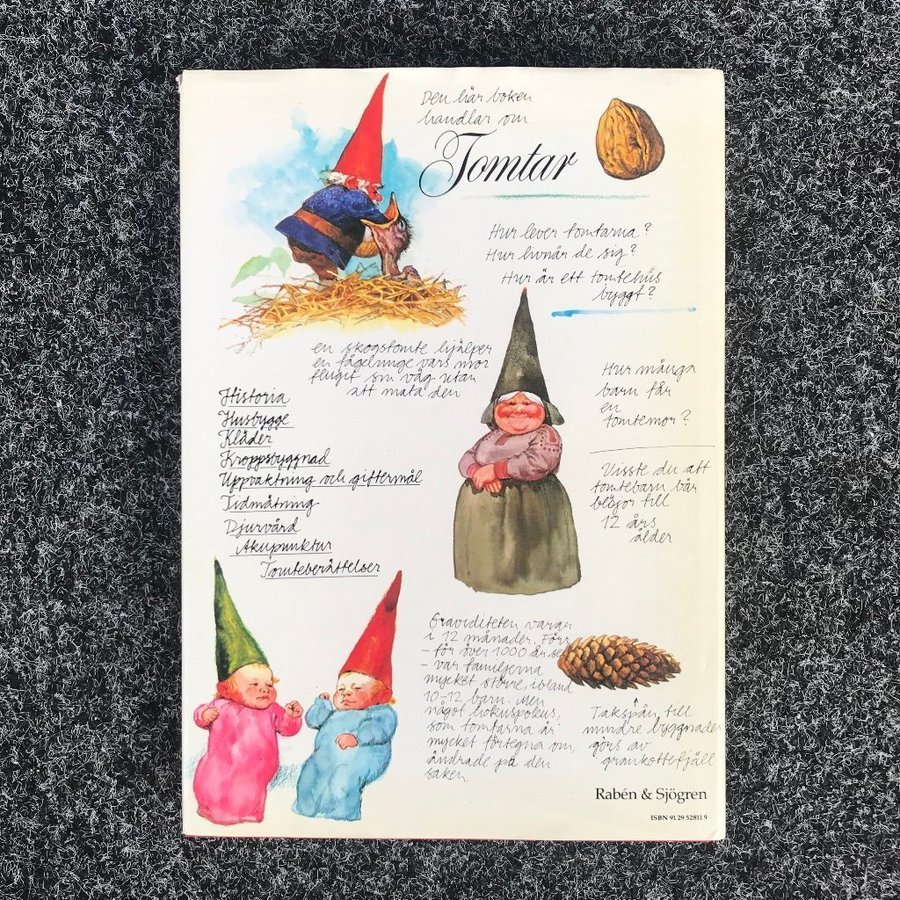 Den här boken
handlar om
Tomtar
Hur lever tomtarna?
Hur livnär de sig?
Hur är ett tomtehus
byggt?
en skogstomte hjälper
en fågelunge vars mor
flugit sin väg utan
att mata den
Historia
Husbygge
Kläder
Kroppsbyggnad
Uppvaktning och giftermål
Tidmätning
Djurvård
Akupunktur
Tomteberättelser
Hur många
barn får
en
tomtemor?
Visste du att
tomtebarn bär
blöjor till
12 års
ålder
Graviditeten varar
i 12 månader. Förr
- för över 1000 år se
- var familjerna
mycket större, ibland
10-12 barn. Men
något hokuspokus,
som tomtarna är
mycket förtegna om,
ändrade på den
saken
Takspån till
mindre byggnader
görs av
grankottefjäll
Rabén & Sjögren
ISBN 91 29 52811 9